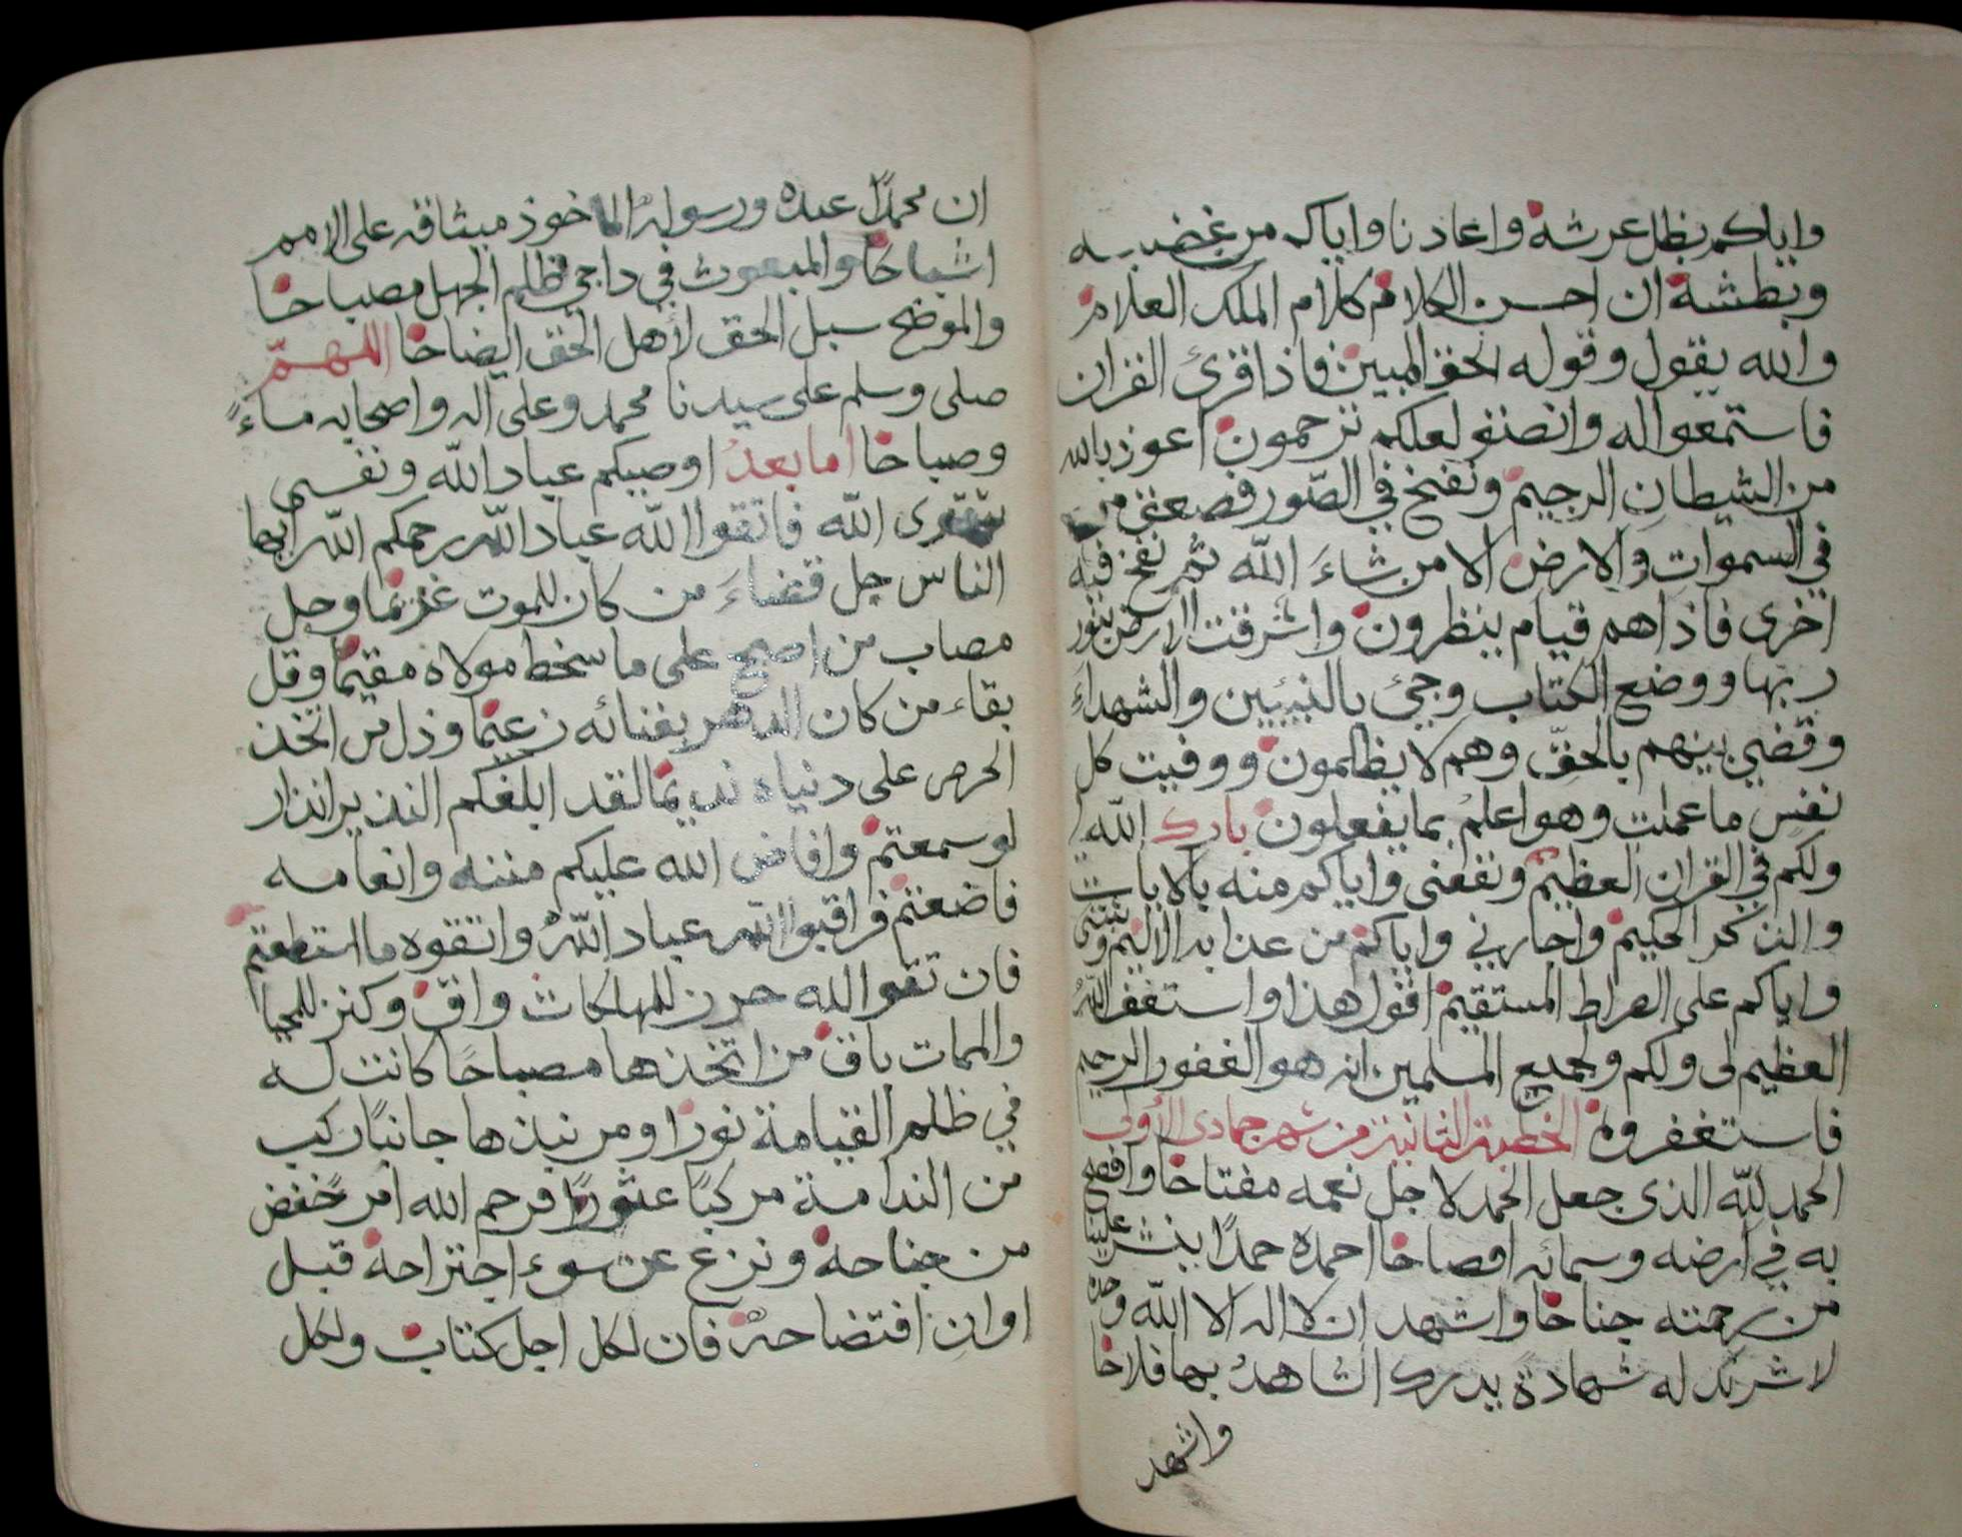 واياكم بظل عرشه واعاذنا واياكم من غضبه
وبطشه ان احسن الكلام كلام الملك العلام
والله يقول وقوله الحق المبين فاذا قرئ القران
فاستمعوا له وانصتو لعلكم ترحمون اعوذ بالله
من الشيطان الرجيم ونفخ في الصور فصعق من
في السموات والارض الا من شاء الله ثم نفخ فيه
اخرى فاذاهم قيام ينظرون واشرقت الارض بنور
ربها ووضع الكتاب وجئ بالنبيين والشهداء
وقضي بينهم بالحق وهم لا يظلمون ووفيت كل
نفس ما عملت وهو اعلم بما يفعلون بارك الله لي
ولكم في القران العظيم ونفعنى واياكم منه بالايات
والذكر الحكيم واجارني واياكم من عذابه الاليم وثبتني
واياكم على الصراط المستقيم اقول هذا واستغفر الله
العظيم لى ولكم ولجميع المسلمين انه هو الغفور الرحيم
فاستغفروه الخطبة الثانية من شهر جمادى الأولى
الحمد لله الذى جعل الحمد لاجل نعمه مفتاحا وافصح
به في ارضه وسمائه افصاحا احمده حمدًا ينشر علينا
من رحمته جناحا واشهد ان لا اله الا الله وحده
لا شريك له شهادة يدرك الشاهد بها فلاحا
واشهد
ان محمدًا عبده ورسوله الماخوذ ميثاقه على الامم
اشباحًا والمبعوث في داجي ظلم الجهل مصباحا
والموضح سبل الحق لأهل الحق ايضاحا اللهمّ
صلى وسلم على سيدنا محمد وعلى اله واصحابه مساءً
وصباحا اما بعد اوصيكم عباد الله ونفسى
بتقوى الله فاتقوا الله عباد الله رحمكم الله ايها
الناس جل قضاء من كان للموت غريما وجل
مصاب من اصبح على ما سخط مولاه مقيما وقل
بقاء من كان الدهر بفنائه زعيما وذل من اتخذ
الحرص على دنياه نديما لقد ابلغكم النذير انذار
لو سمعتم وافاض الله عليكم مننه وانعامه
فاضعتم فراقبوا الله عباد الله واتقوه ما استطعتم
فان تقوا الله حرز للمهلكات واق وكنز للمحيا
والممات باق من اتخذها مصباحًا كانت له
في ظلم القيامة نورا ومن نبذها جانبًا ركب
من الندامة مركبًا عثورًا فرحم الله امرًا خفض
من جناحه ونزع عن سوء اجتراحه قبل
اوان افتضاحه فان لكل اجل كتاب ولكل